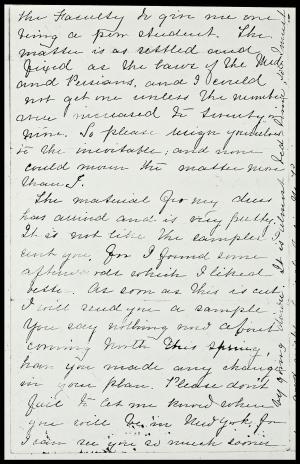 the Faculty to give me one
being a new student. The
matter is as settled and
fixed as the laws of the Med
and Persians, and I could
not get one unless the number
were increased to twenty-
nine. So please resign yourselves
to the inevitable; and none
could mourn the matter more
than I.
The material for my dress
has arrived and is very pretty.
It is not like the sample I
sent you, for I found some
afterwards which I liked
better. As soon as this is cut,
I will send you a sample
You say nothing now about
coming North this spring,
have you made any change
in your plan. Please don't
fail to let me know when
you will be in New York, for
I can see you so much sooner
by going there. It is almost bed time so I must